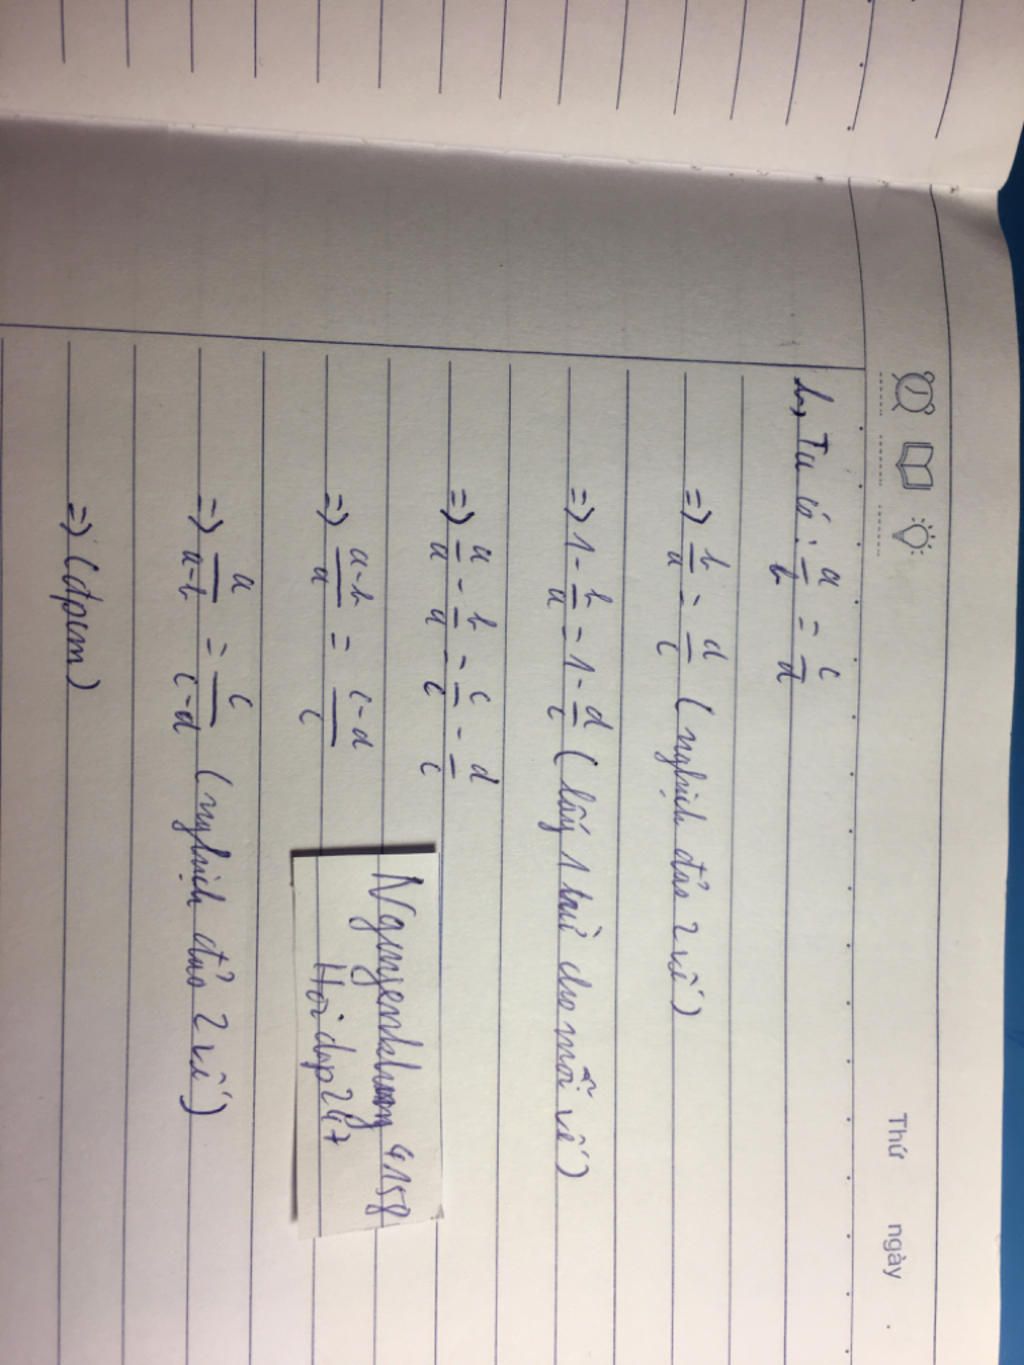 Thứ ngày .
b, Ta có : a/b = c/d
=> b/a = d/c (nghịch đảo 2 vế)
=> 1 - b/a = 1 - d/c (lấy 1 trừ cho mỗi vế)
=> a/a - b/a = c/c - d/c
=> a-b/a = c-d/c
=> a/a-b = c/c-d (nghịch đảo 2 vế)
=> (đpcm)
Hoidap247